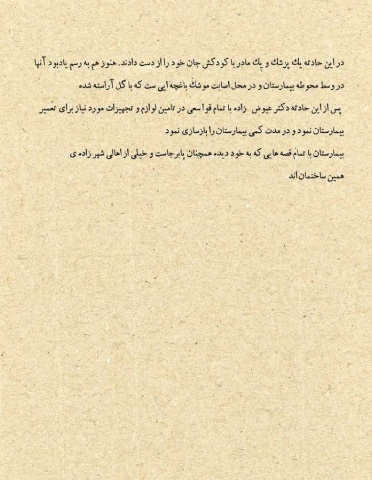 در این حادثه یک پزشک و یک مادر با کودکش جان خود را از دست دادند. هنوز هم به رسم یادبود آنها
در وسط محوطه بیمارستان و در محل اصابت موشک باغچه ایی ست که با گل آراسته شده
پس از این حادثه دکتر عیوض زاده با تمام قوا سعی در تامین لوازم و تجهیزات مورد نیاز برای تعمیر
بیمارستان نمود و در مدت کمی بیمارستان را بازسازی نمود
بیمارستان با تمام قصه هایی که به خود دیده همچنان پابرجاست و خیلی از اهالی شهر زاده ی
همین ساختمان اند